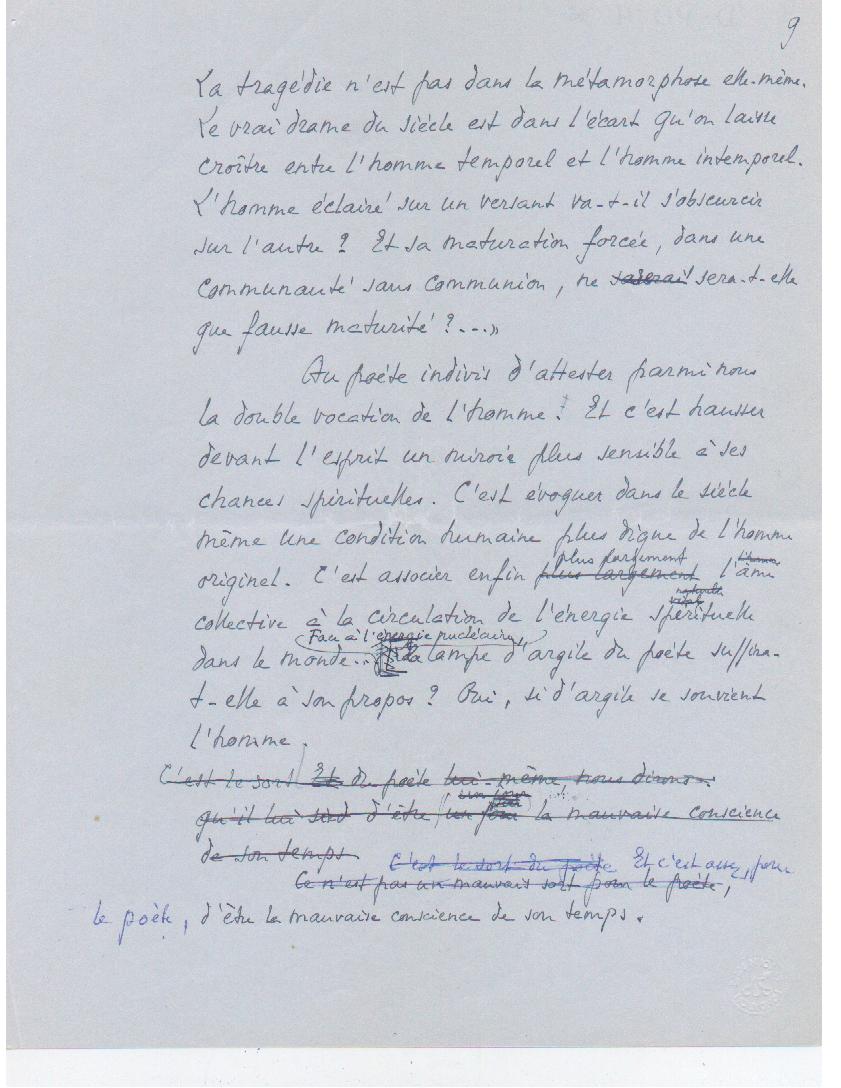 9
La tragédie n'est pas dans la métamorphose elle-même.
Le vrai drame du siècle est dans l'écart qu'on laisse
croître entre l'homme temporel et l'homme intemporel.
L'homme éclairé sur un versant va-t-il s'obscurcir
sur l'autre ? Et sa maturation forcée, dans une
communauté sans communion, ne sera-t-elle
que fausse maturité ?...»
Au poète indivis d'attester parmi nous
la double vocation de l'homme. Et c'est hausser
devant l'esprit un miroir plus sensible à ses
chances spirituelles. C'est évoquer dans le siècle
même une condition humaine plus digne de l'homme
plus largement l'homme
originel. C'est associer enfin plus largement l'âme
collective à la circulation de l'énergie spirituelle
Face à l'énergie nucléaire,
dans le monde... la lampe d'argile du poète suffira-
t-elle à son propos ? Oui, si d'argile se souvient
l'homme.
C'est le sort Et du poète lui-même nous dirons
un jour
qu'il lui sied d'être un jour la mauvaise conscience
de son temps.
C'est le sort du poète Et c'est assez, pour
Ce n'est pas un mauvais sort pour le poète,
le poète, d'être la mauvaise conscience de son temps.